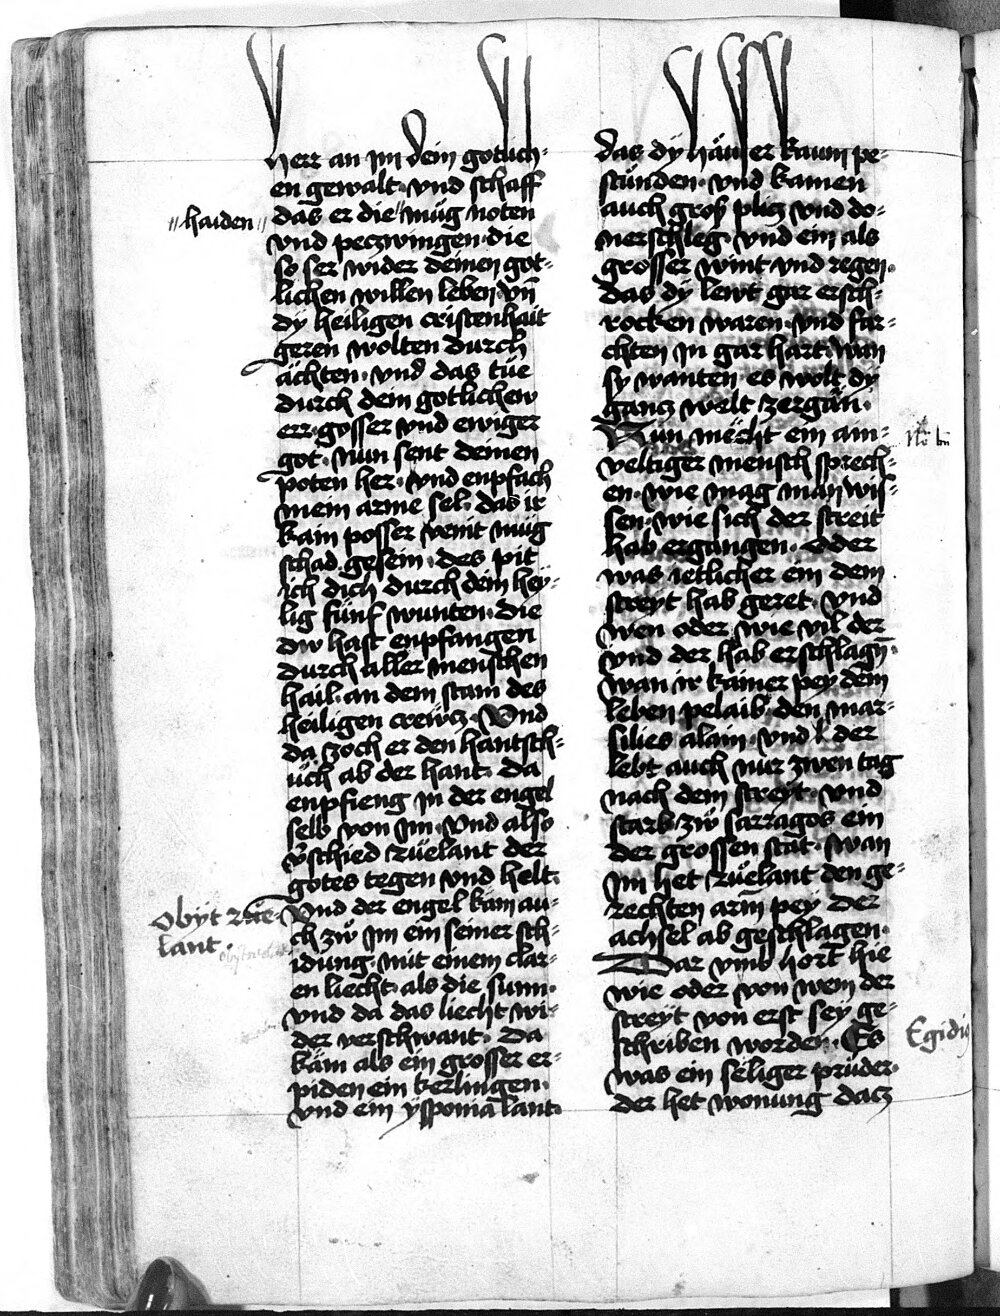 herr an im dein gotlich⸗
en gewalt· vnd schaff
das er die müg noten
//haiden//
vnd peczwingen die
so ser wider deinen got⸗
lichen willen leben vn̄
dy heiligen cristenhait
geren wolten durch
ächten· vnd das tüe
durch dein gotlichew
err· gosser vnd ewiger
got· nun sent deinen
poten her· vnd enpfach
mein arme sel· das ir
kain posser veint müg
schad gesein· des pit
ich dich durch dein hey⸗
lig fünf wunten· die
dw hast enpfangen
durch aller menschen
hail· an dem stam des
heiligen crewcz· Vnd
da zoch er den hantsch⸗
üch ab der hant· da
enpfieng in der engel
selb von im· vnd also
v̄schied rüelant der
gotes tegen vnd helt·
Vnd der engel kam au⸗
obyt rüe⸗
lant·
ch zw im ein seiner sch⸗
idung· mit einem clar⸗
en liecht· als die sunn·
vnd da das liecht wi⸗
der verschwant· Da
käm als ein grosser er⸗
piden ein kerlingen·
vnd ein ysponia lant·
das dy häwser kaum pe⸗
stünden· vnd kamen
auch groß plicz vnd do⸗
nerschleg· vnd ein als
grosser wint vnd regen·
das dy lewt gar ersch⸗
rocken waren· vnd fär⸗
chten in gar hart· wan
sy wanten es wolt dy
gancz welt zergän·
Nün möcht ein ain⸗
veltiger mensch sprech⸗
en· wie mag man wis⸗
sen· wie sich der streit
hab ergangen· oder
was ietlicher ein dem
streyt hab geret· vnd
wen oder wie vil der
vnd der hab erschlagn̄·
wan ir kainer pey dem
leben pelaib· den mar⸗
silies alain· vnd der
lebt auch nur zwen tag
nach dem streyt· vnd
starb zw sarragos ein
der grossen stat· wan
im het rüelant den ge⸗
rechten arm pey der
achsel ab geschlagen·
Dar vmb hort hie
wie oder von wem der
streyt von erst sey ge⸗
schriben worden· Es
Egidi
was ein seliger prüder·
der het wonung dacz